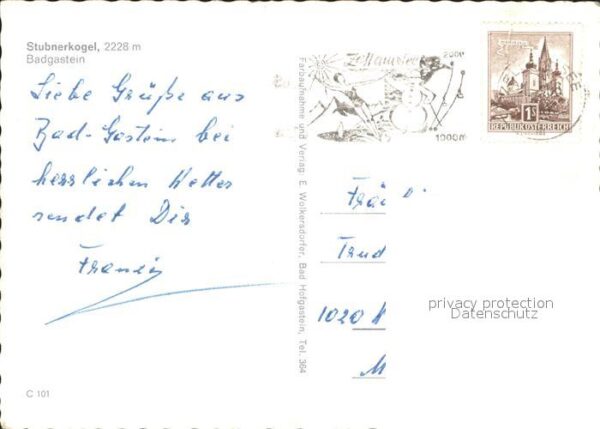 Stubnerkogel, 2228 m
Badgastein
Liebe Grüße aus
Bad-Gastein bei
herrlichen Wetter
sendet Dir
Franzi
C 101
Farbaufnahme und Verlag: E. Wolkersdorfer, Bad Hofgastein, Tel. 364
Zell am See
2000
1000 m
1S
REPUBLIK ÖSTERREICH
Trud
1020
M
privacy protection
Datenschutz